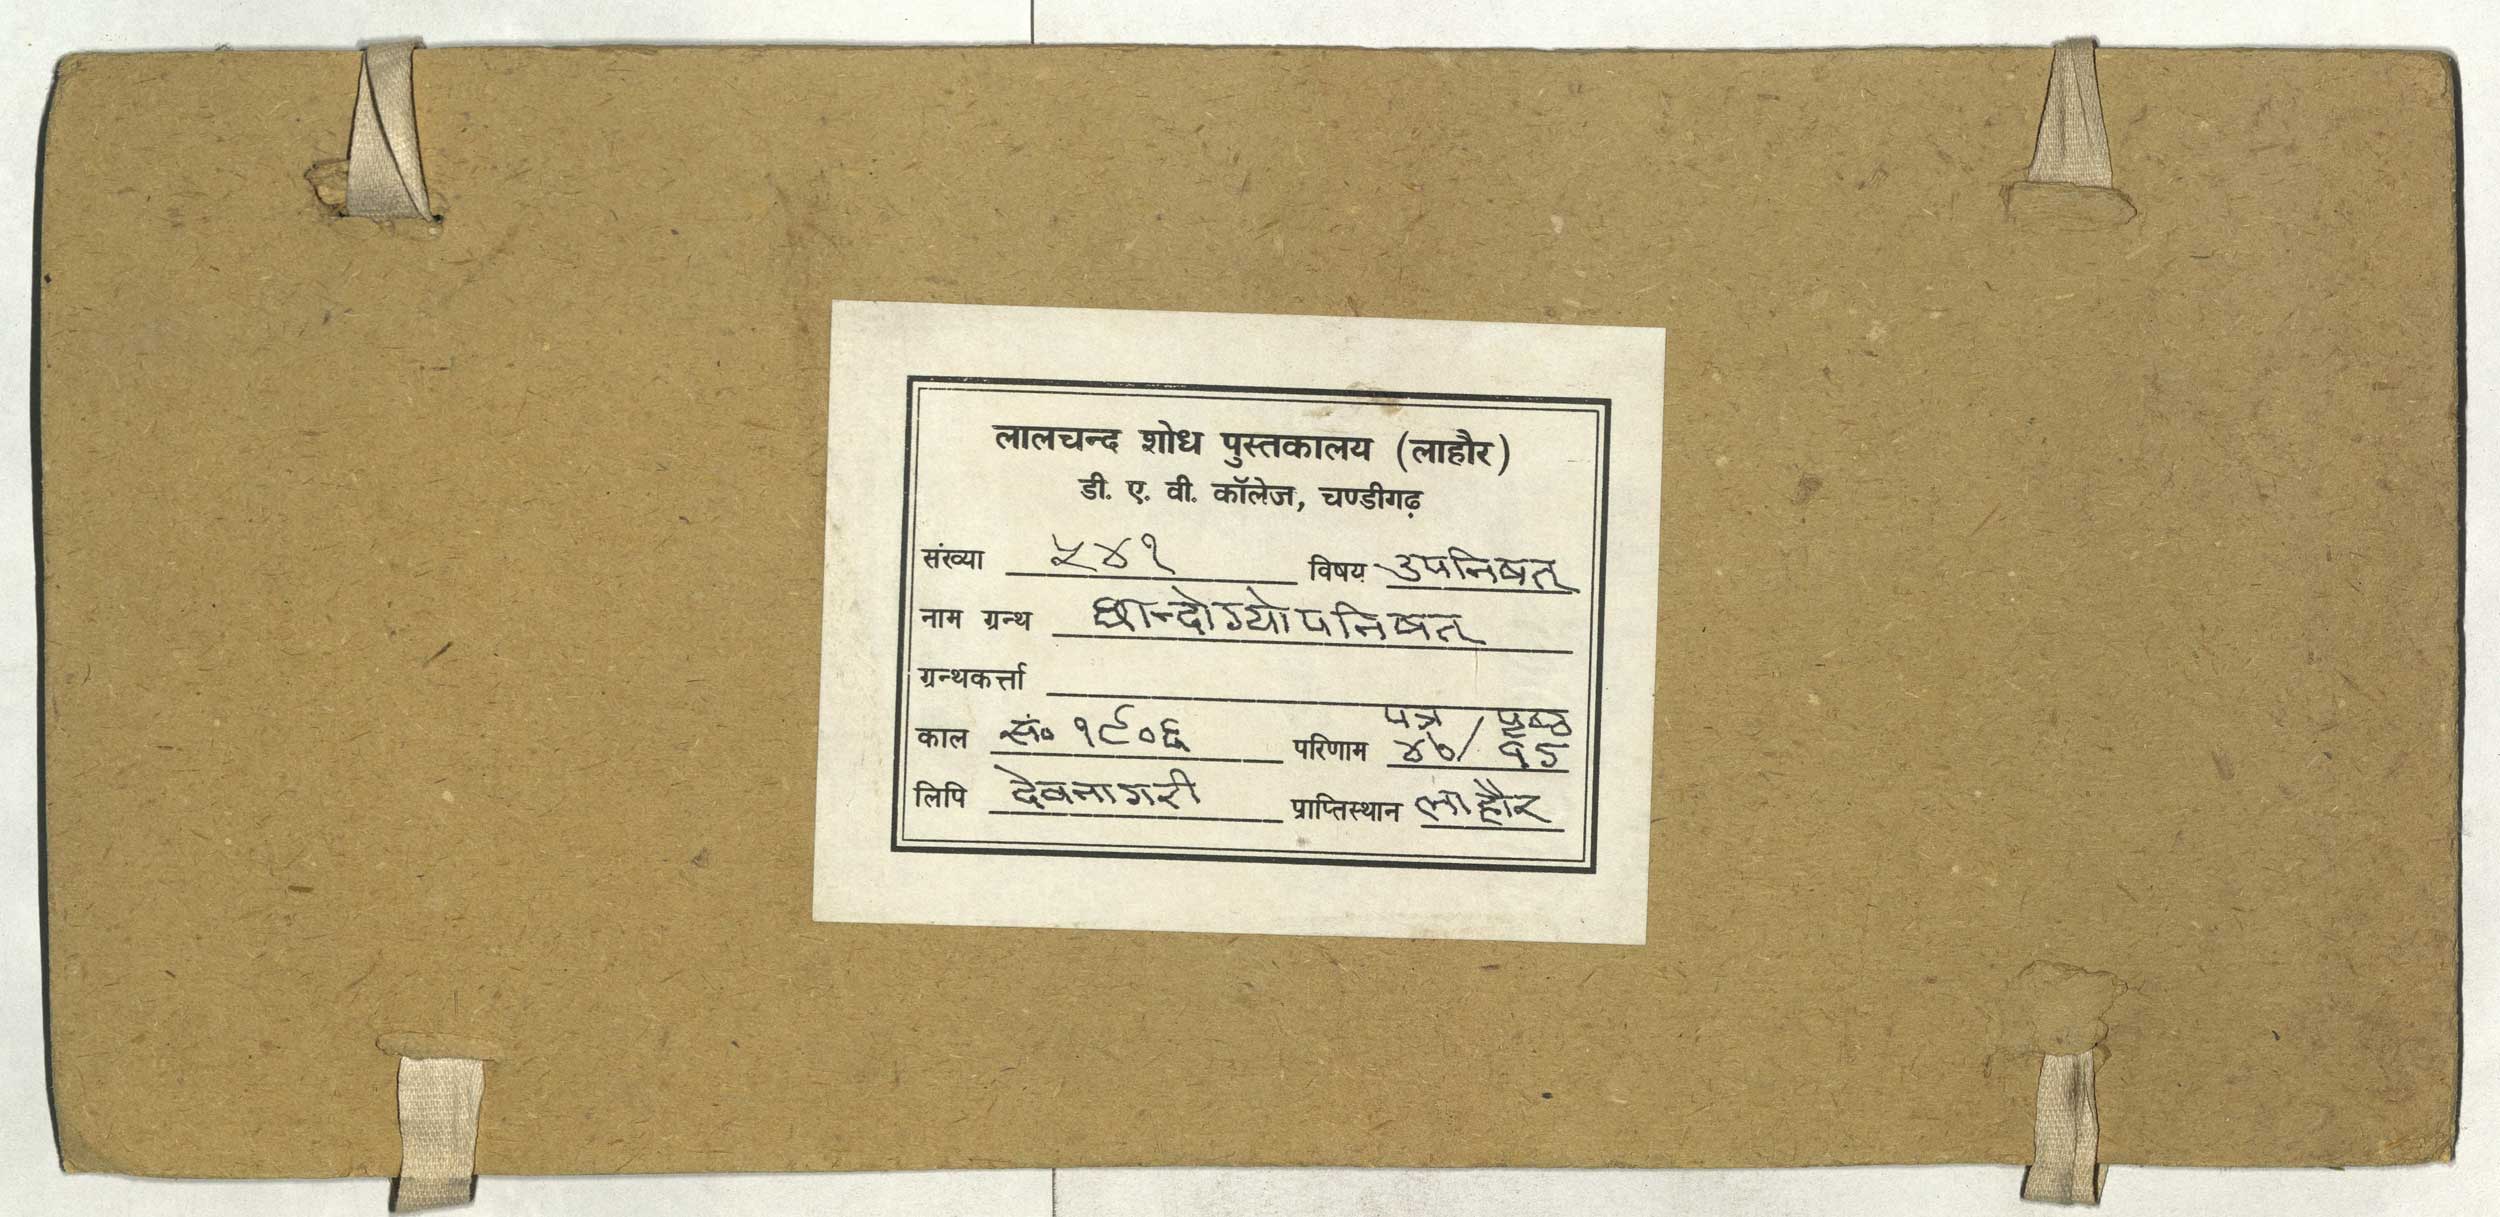 लालचन्द शोध पुस्तकालय (लाहौर)
डी. ए. वी. कॉलेज, चण्डीगढ़
संख्या ५४१ विषय उपनिषत्
नाम ग्रन्थ छान्दोग्योपनिषत्
ग्रन्थकर्त्ता
पत्र / पृष्ठ
काल सं० १९०६ परिणाम
लिपि देवनागरी प्राप्तिस्थान लाहौर